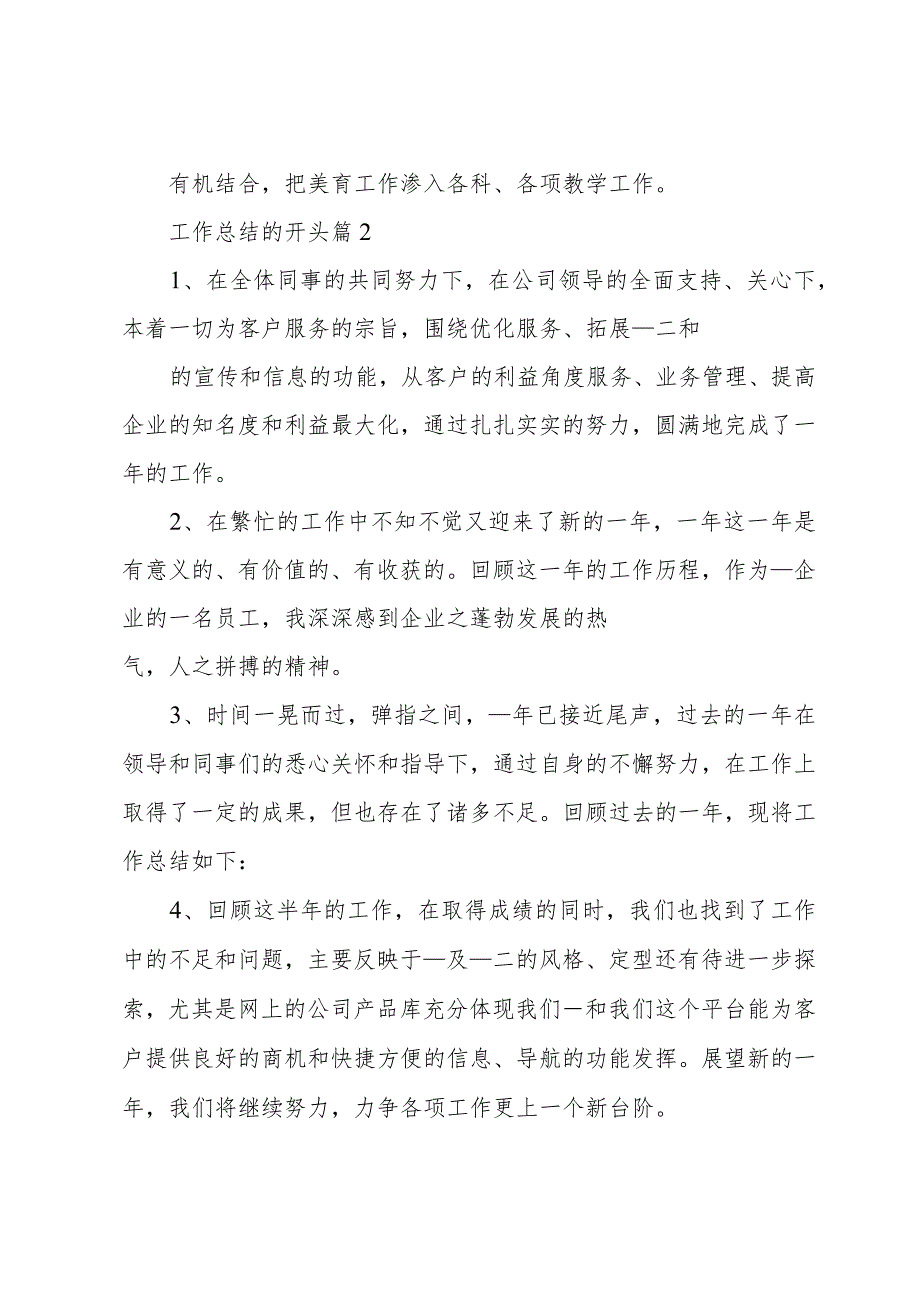 有机结合，把美育工作渗入各科、各项教学工作。
工作总结的开头篇2
1、在全体同事的共同努力下，在公司领导的全面支持、关心下，
本着一切为客户服务的宗旨，围绕优化服务、拓展—二和
的宣传和信息的功能，从客户的利益角度服务、业务管理、提高
企业的知名度和利益最大化，通过扎扎实实的努力，圆满地完成了一
年的工作。
2、在繁忙的工作中不知不觉又迎来了新的一年，一年这一年是
有意义的、有价值的、有收获的。回顾这一年的工作历程，作为—企
业的一名员工，我深深感到企业之蓬勃发展的热
气，人之拼搏的精神。
3、时间一晃而过，弹指之间，—年已接近尾声，过去的一年在
领导和同事们的悉心关怀和指导下，通过自身的不懈努力，在工作上
取得了一定的成果，但也存在了诸多不足。回顾过去的一年，现将工
作总结如下：
4、回顾这半年的工作，在取得成绩的同时，我们也找到了工作
中的不足和问题，主要反映于—及—二的风格、定型还有待进一步探
索，尤其是网上的公司产品库充分体现我们－和我们这个平台能为客
户提供良好的商机和快捷方便的信息、导航的功能发挥。展望新的一
年，我们将继续努力，力争各项工作更上一个新台阶。